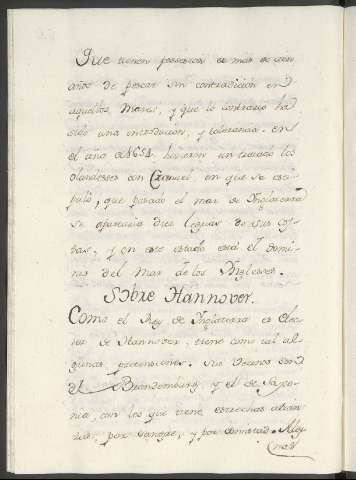 Que tienen possesion de mas de cien
años de pescar sin contradicion en
aquellos Mares, y que lo contrario ha
sido una introducion, y tolerancia. en
el año de 1654. hicieron un tratado los
Olandeses con Cromuel, en que se esti-
puló, que pasado el mar de Ynglaterra
se apartaria diez leguas de sus cos-
tas. y en este estado está el Domi-
nio del Mar de los Yngleses.
Sobre Hannover.
Como el Rey de Ynglaterra es Elec-
tor de Hannover, tiene como tal al-
gunas pretensiones. Sus Vecinos son
el Brandemburg, y el de Saxo-
nia, con los que tiene estrechas alian-
zas, por sangre, y por amistad. Aleg